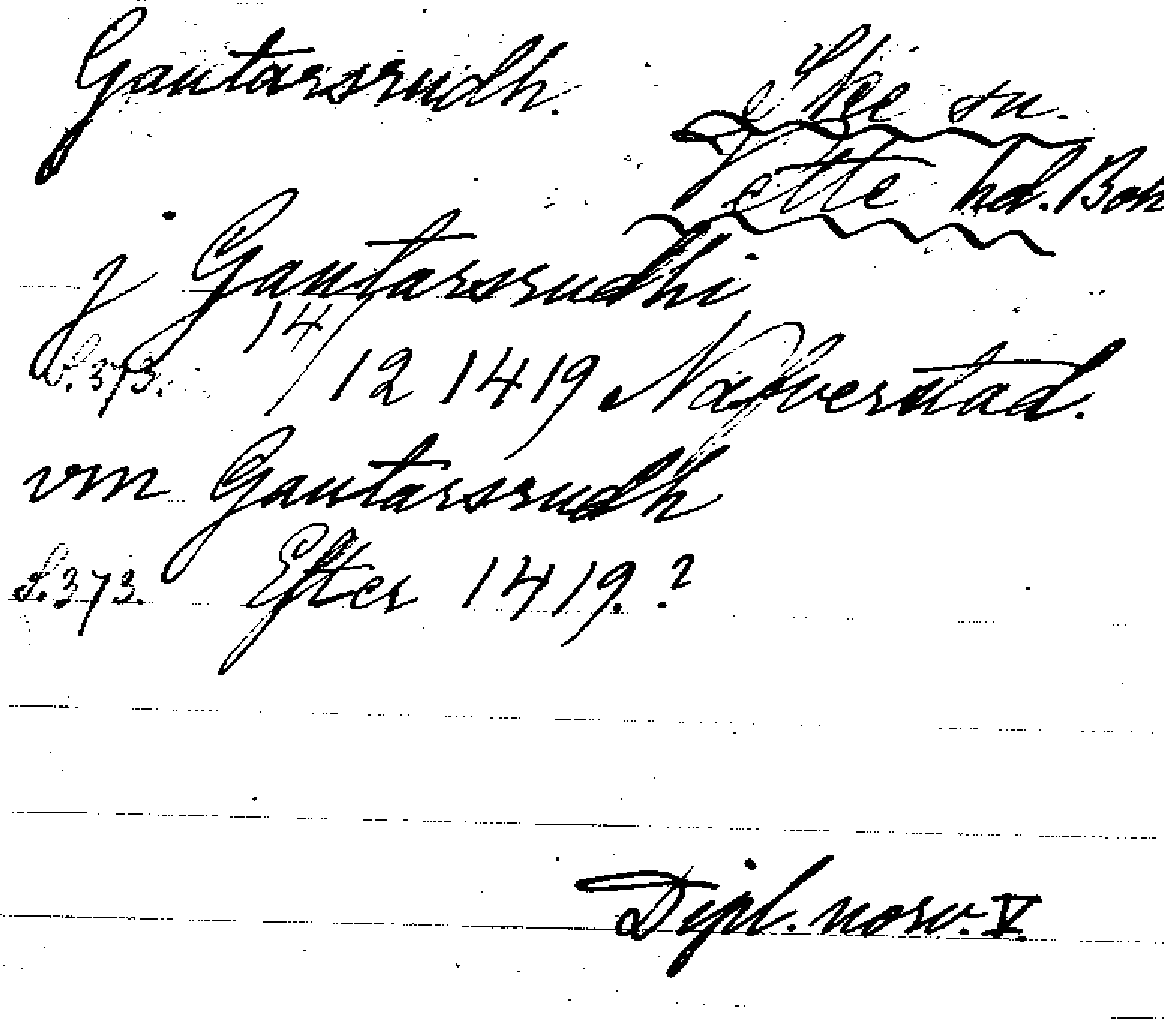 Gautarsrudh.
Skee sn.
Vette hd. Boh
j Gautarsrudhi
S. 373. 14/12 1419 Nafverstad.
vm Gautarsrudh
S. 373. Efter 1419. ?
Dipl. norv. V.